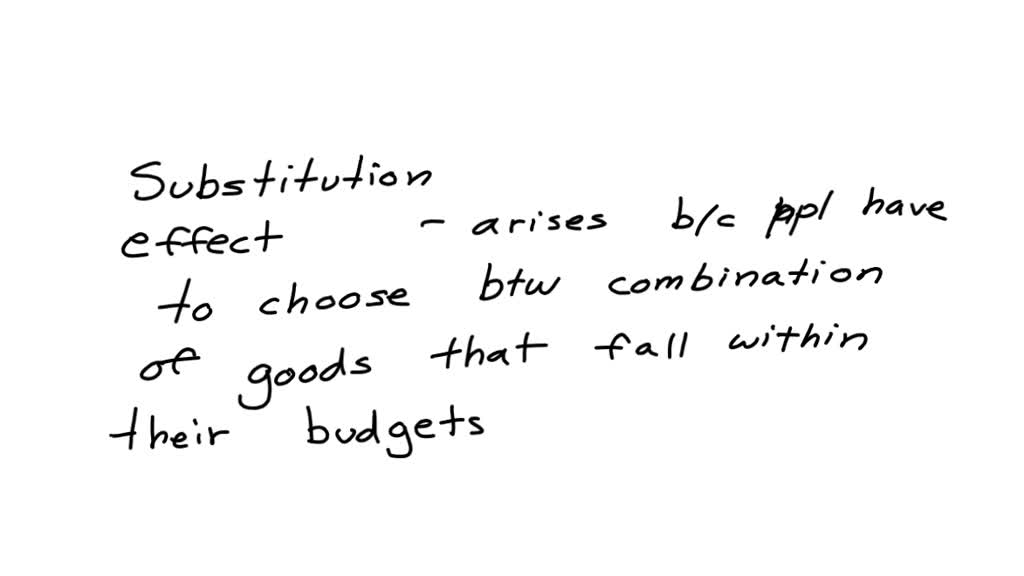 Substitution
effect - arises b/c ppl have
to choose btw combination
of goods that fall within
their budgets